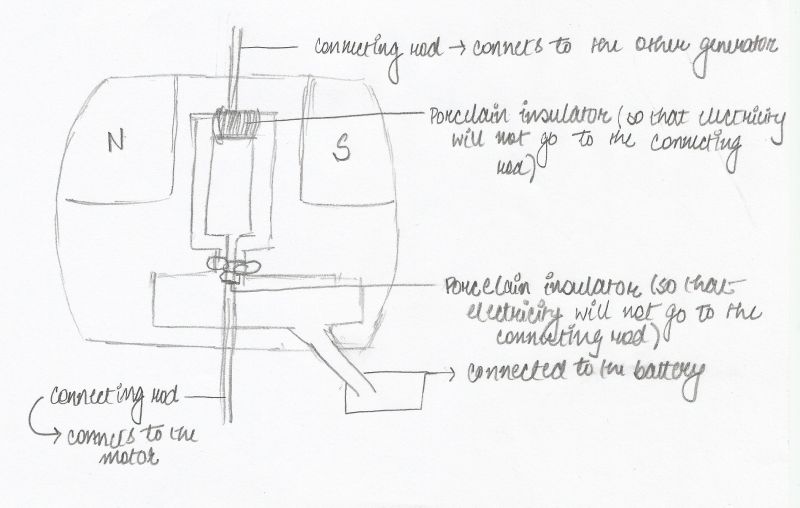 connecting rod → connets to the other generator
N
S
Porcelain insulator (so that electricity
will not go to the connecting
rod)
Porcelain insulator (so that
electricity will not go to the
connecting rod)
connected to the battery
connecting rod
connets to the
motor